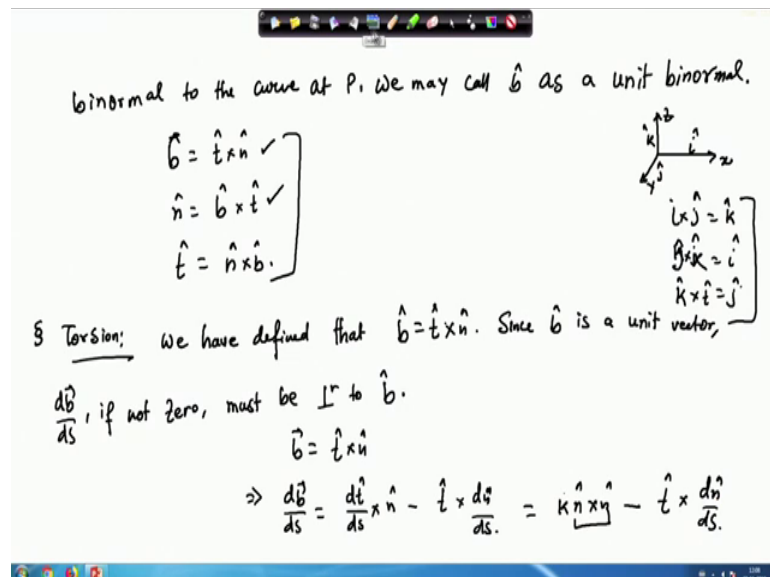 binormal to the curve at P. We may call b̂ as a unit binormal.
b⃗ = t̂ × n̂ ✓
n̂ = b̂ × t̂ ✓
t̂ = n̂ × b̂.
z
k̂
î
x
ĵ
y
i × ĵ = k̂
ĵ × k̂ = î
k̂ × î = ĵ
§ Torsion: We have defined that b̂ = t̂ × n̂. Since b̂ is a unit vector,
db⃗/ds, if not zero, must be ⊥r to b̂.
b⃗ = t̂ × n̂
⇒ db⃗/ds = dt̂/ds × n̂ - t̂ × dn̂/ds. = κ n̂ × n̂ - t̂ × dn̂/ds.